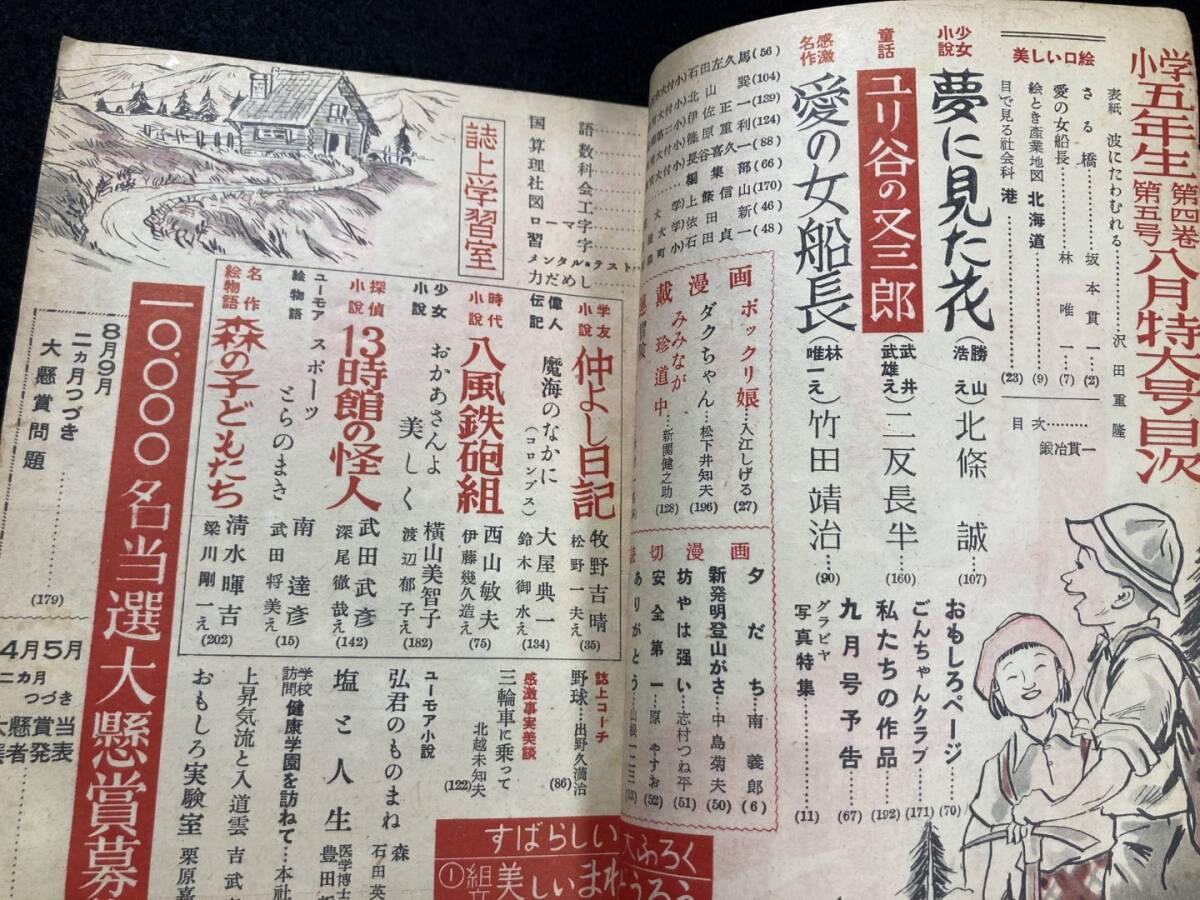 小学五年生 第四巻 第五号 八月特大号目次
表紙 波にたわむれる……沢田重隆
美しい口絵
さる橋……坂本貫一…(2)
愛の女船長……林唯一…(7)
絵とき産業地図 北海道…(9)
目で見る社会科 港…(23)
目次………鍛冶貫一
少女小説 夢に見た花 (勝山浩え) 北條誠…(107)
童話 ユリ谷の又三郎 (武井武雄え) 二反長半…(160)
感激名作 愛の女船長 (林唯一え) 竹田靖治…(90)
おもしろページ…(70)
ごんちゃんクラブ…(171)
私たちの作品…(192)
九月号予告…(67)
グラビヤ写真特集…(11)
漫画
ポックリ娘…入江しげる(27)
ダクちゃん…松下井知夫(196)
みみなが珍道中…新関健之助(128)
切漫画
夕だち…南義郎(6)
新発明登山がさ…中島菊夫(50)
坊やは強い…志村つね平(51)
安全第一…原やすお(52)
ありがとう…山根一二三
誌上学習室
国語
石田左久馬(56)
算数
北山巽(104)
理科
伊佐正一(139)
社会
篠原重利(124)
図工
長谷喜久一(88)
ローマ字
編集部(66)
習字
上條信山(170)
メンタル・テスト
依田新(46)
力だめし
石田貞一(48)
学友小説 仲よし日記 牧野吉晴 松野一夫え(35)
偉人伝記 魔海のなかに(コロンブス) 大屋典一 鈴木御水え(134)
時代小説 八風鉄砲組 西山敏夫 伊藤幾久造え(75)
少女小説 おかあさんよ美しく 横山美智子 渡辺郁子え(182)
探偵小説 13時館の怪人 武田武彦 深尾徹哉え(142)
ユーモア絵物語 スポーツとらのまき 南達彦 武田将美え(15)
名作絵物語 森の子どもたち 清水暉吉 梁川剛一え(202)
誌上コーチ 野球…出野久満治(86)
感激事実美談 三輪車に乗って 北越未知夫(122)
ユーモア小説 弘君のものまね 森 石田英
塩と人生 医学博士 豊田
学校訪問 健康学園を訪ねて…本社
上昇気流と入道雲 吉武
おもしろ実験室 栗原嘉
一〇,〇〇〇名当選大懸賞募
8月9月 二カ月つづき 大懸賞問題………(179)
4月5月 二カ月つづき
大懸賞当選者発表
すばらしい大ふろく
①組立 美しい